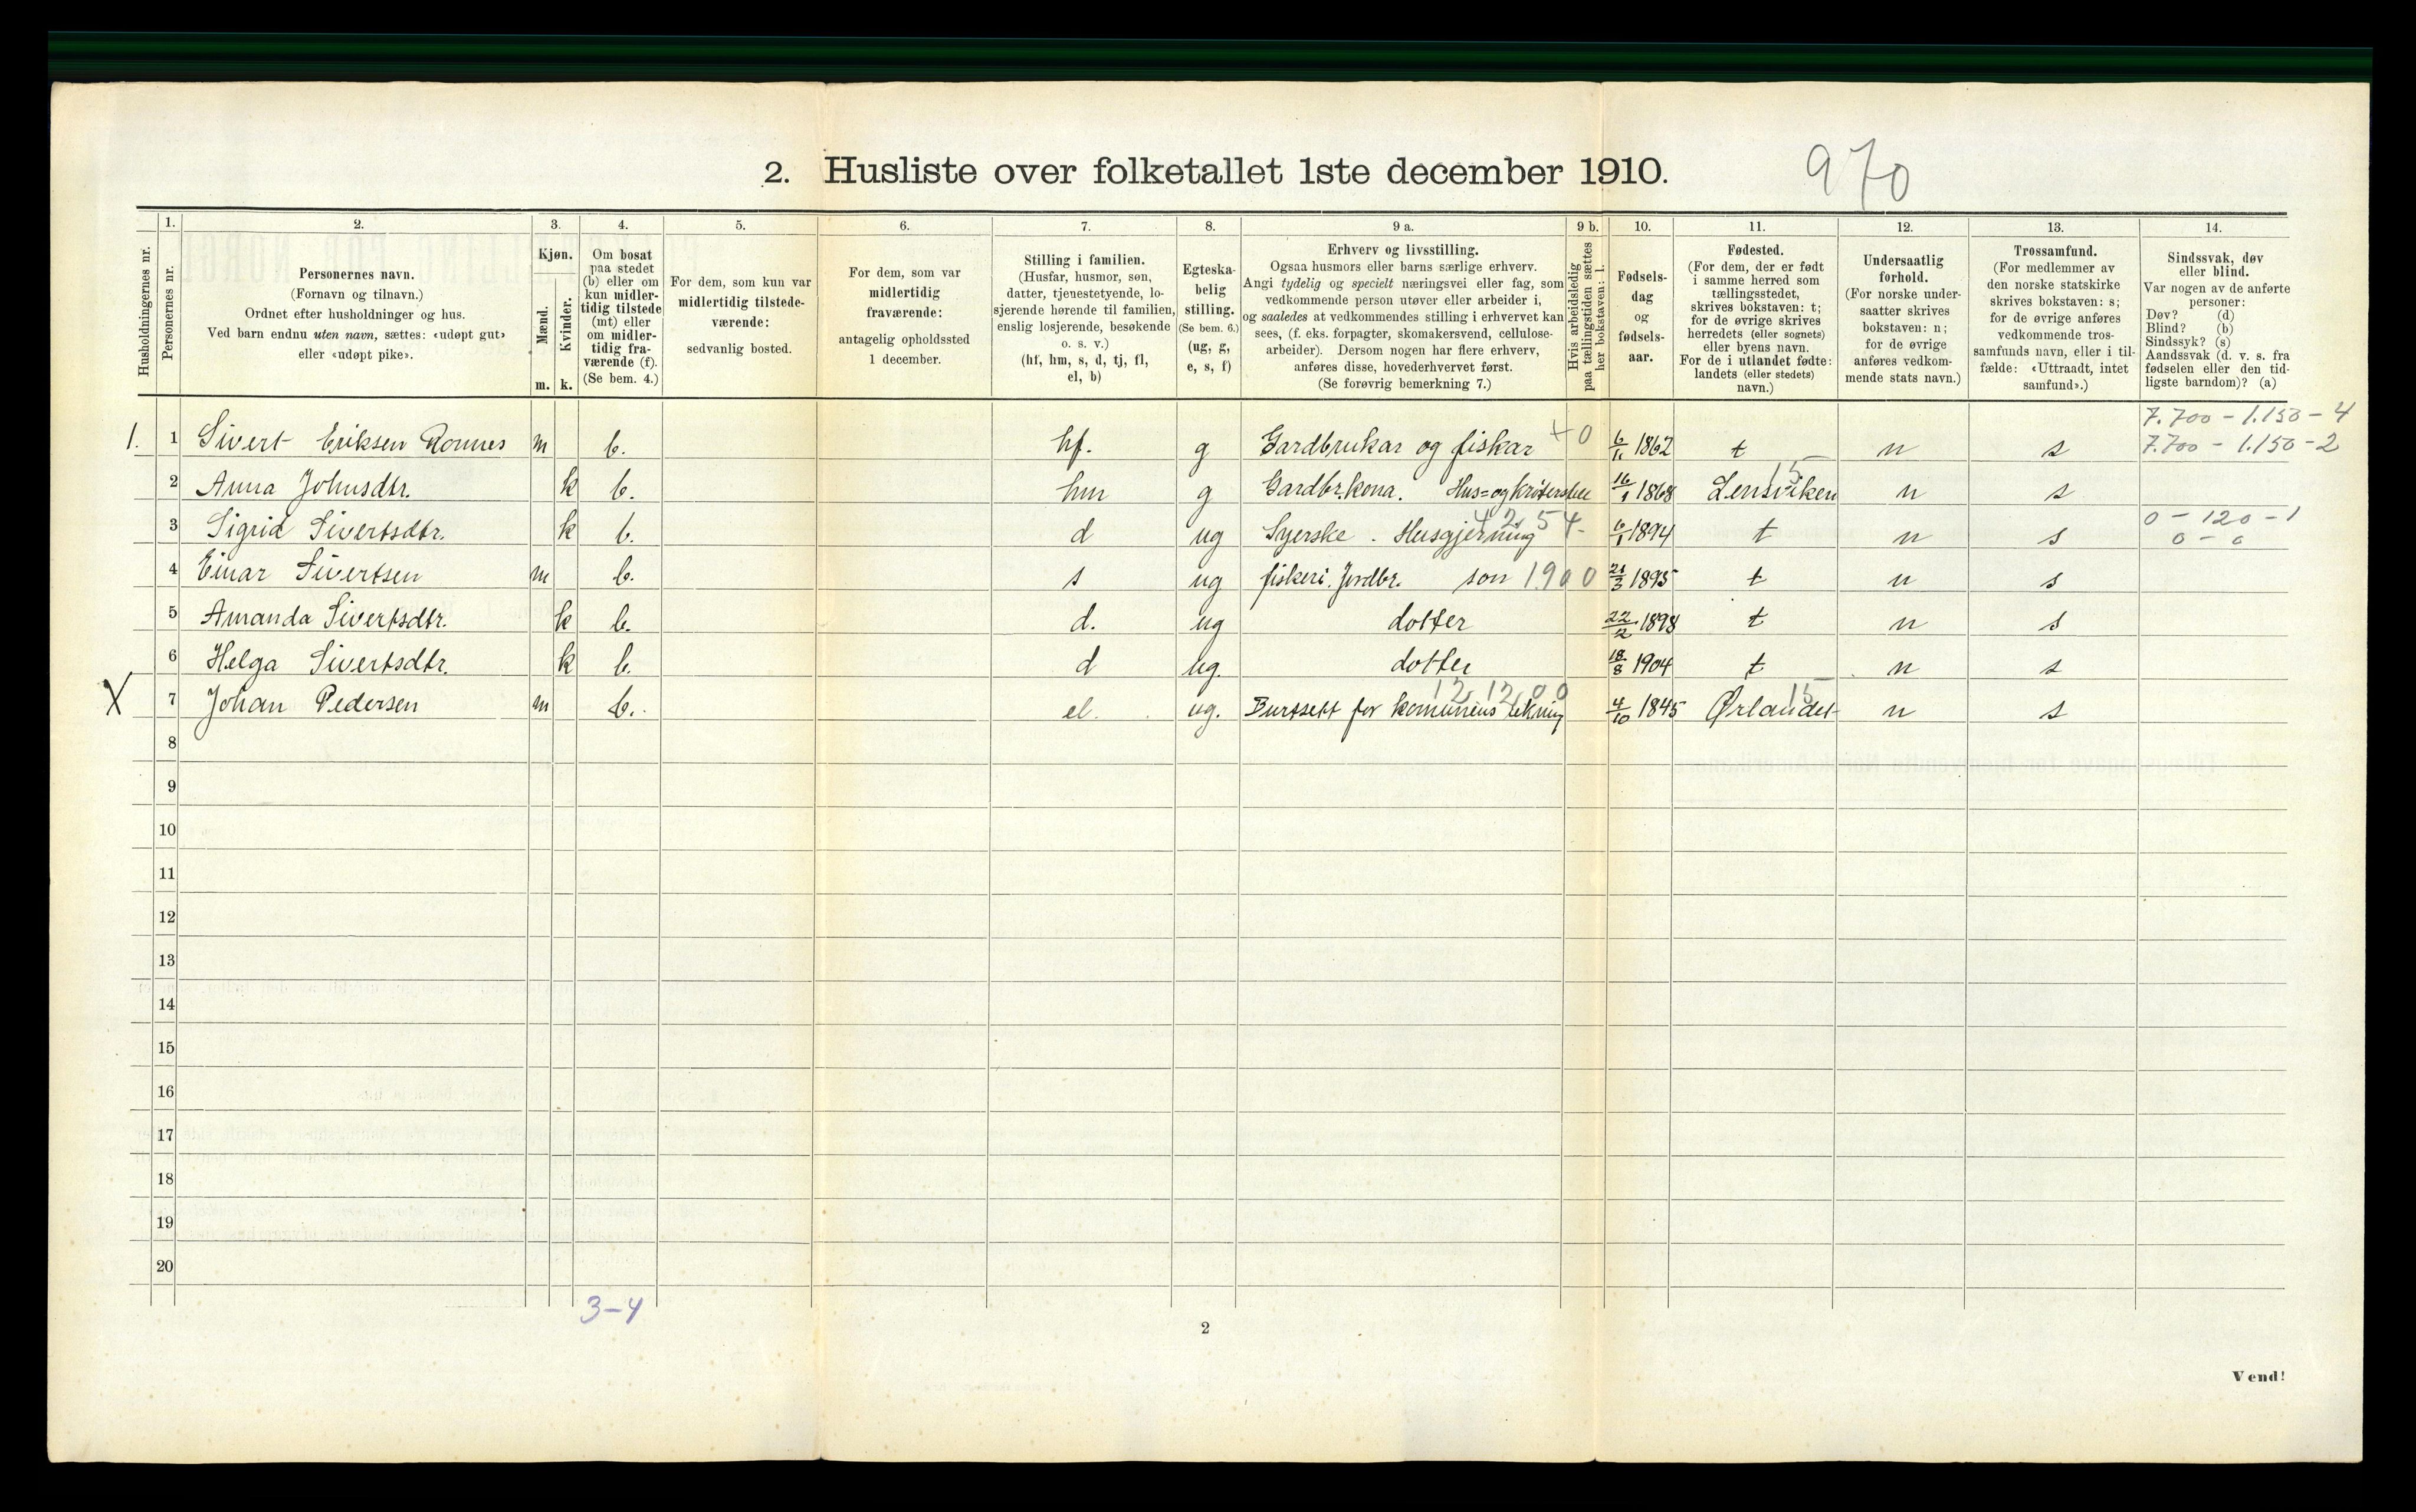 2. Husliste over folketallet 1ste december 1910.
970
Husholdningernes nr.
1.
Personernes nr.
2.
Personernes navn.
(Fornavn og tilnavn.)
Ordnet efter husholdninger og hus.
Ved barn endnu uten navn, sættes: «udøpt gut»
eller «udøpt pike».
3.
Kjøn.
Mænd.
Kvinder.
m. k.
4.
Om bosat
paa stedet
(b) eller om
kun midler-
tidig tilstede
(mt) eller
om midler-
tidig fra-
værende (f).
(Se bem. 4.)
5.
For dem, som kun var
midlertidig tilstede-
værende:
sedvanlig bosted.
6.
For dem, som var
midlertidig
fraværende:
antagelig opholdssted
1 december.
7.
Stilling i familien.
(Husfar, husmor, søn,
datter, tjenestetyende, lo-
sjerende hørende til familien,
enslig losjerende, besøkende
o. s. v.)
(hf, hm, s, d, tj, fl,
el, b)
8.
Egteska-
belig
stilling.
(Se bem. 6.)
(ug, g,
e, s, f)
9 a.
Erhverv og livsstilling.
Ogsaa husmors eller barns særlige erhverv.
Angi tydelig og specielt næringsvei eller fag, som
vedkommende person utøver eller arbeider i,
og saaledes at vedkommendes stilling i erhvervet kan
sees, (f. eks. forpagter, skomakersvend, cellulose-
arbeider). Dersom nogen har flere erhverv,
anføres disse, hovederhvervet først.
(Se forøvrig bemerkning 7.)
9 b.
Hvis arbeidsledig
paa tællingstiden sættes
her bokstaven: l.
10.
Fødsels-
dag
og
fødsels-
aar.
11.
Fødested.
(For dem, der er født
i samme herred som
tællingsstedet,
skrives bokstaven: t;
for de øvrige skrives
herredets (eller sognets)
eller byens navn.
For de i utlandet fødte:
landets (eller stedets)
navn.)
12.
Undersaatlig
forhold.
(For norske under-
saatter skrives
bokstaven: n;
for de øvrige
anføres vedkom-
mende stats navn.)
13.
Trossamfund.
(For medlemmer av
den norske statskirke
skrives bokstaven: s;
for de øvrige anføres
vedkommende tros-
samfunds navn, eller i til-
fælde: «Uttraadt, intet
samfund».)
14.
Sindssvak, døv
eller blind.
Var nogen av de anførte
personer:
Døv? (d)
Blind? (b)
Sindssyk? (s)
Aandssvak (d. v. s. fra
fødselen eller den tid-
ligste barndom)? (a)
7.700 - 1.150 - 4
1. 1 Sivert Eriksen Ronnes m b. hf. g Gardbrukar og fiskar +0 6/11 1862 t n s 7.700 - 1.150 - 2
2 Anna Johnsdtr. k b. hm g Gardbr.kona. Hus= og krøterstell 16/1 1868 Lensviken 15 n s
3 Sigrid Sivertsdtr. k b. d ug Syerske. Husgjerning 4254- 6/1 1894 t n s 0 - 120 - 1
0 - 0
4 Einar Sivertsen m b. s ug fiskeri. Jordbr. son 1900 21/3 1895 t n s
5 Amanda Sivertsdtr. k b. d. ug dotter 22/2 1898 t n s
6 Helga Sivertsdtr. k b. d ug. dotter 18/8 1904 t n s
X 7 Johan Pedersen m b. el. ug. Burtsett for komunens rekning 12.12.00 4/10 1845 Ørlandet 15 n s
8
9
10
11
12
13
14
15
16
17
18
19
20
3-4
2
Vend!